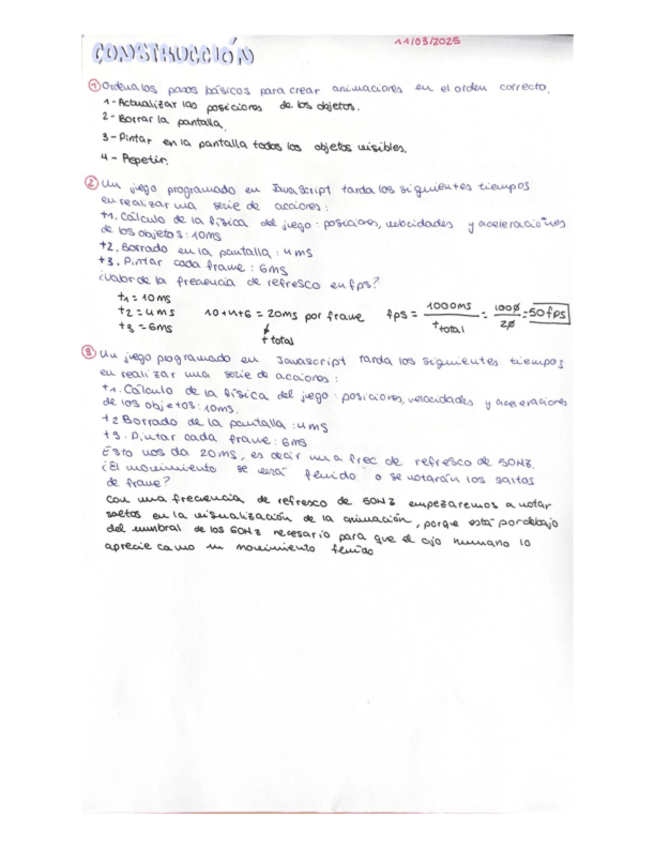 11/03/2025
CONSTRUCCIÓN
① Ordena los pasos básicos para crear animaciones en el orden correcto.
1-Actualizar las posiciones de los objetos.
2-Borrar la pantalla.
3-Pintar en la pantalla todos los objetos visibles.
4-Repetir.
② Un juego programado en JavaScript tarda los siguientes tiempos
en realizar una serie de acciones:
t1. Cálculo de la física del juego: posiciones, velocidades y aceleraciones
de los objetos: 10ms
t2. Borrado en la pantalla: 4ms
t3. Pintar cada frame: 6ms
¿Valor de la frecuencia de refresco en fps?
t1 = 10ms
t2 = 4ms 10+4+6 = 20ms por frame fps = 1000ms / t total = 1000 / 20 = 50fps
t3 = 6ms
t total
③ Un juego programado en Javascript tarda los siguientes tiempos
en realizar una serie de acciones:
t1. Cálculo de la física del juego: posiciones, velocidades y aceleraciones
de los objetos: 10ms.
t2 Borrado de la pantalla: 4ms
t3. Pintar cada frame: 6ms
Esto nos da 20ms, es decir una frec de refresco de 50HZ.
¿El movimiento se verá fluido o se notarán los saltos
de frame?
Con una frecuencia de refresco de 50HZ empezaremos a notar
saltos en la visualización de la animación, porque está por debajo
del umbral de los 60HZ necesario para que el ojo humano lo
aprecie como un movimiento fluido